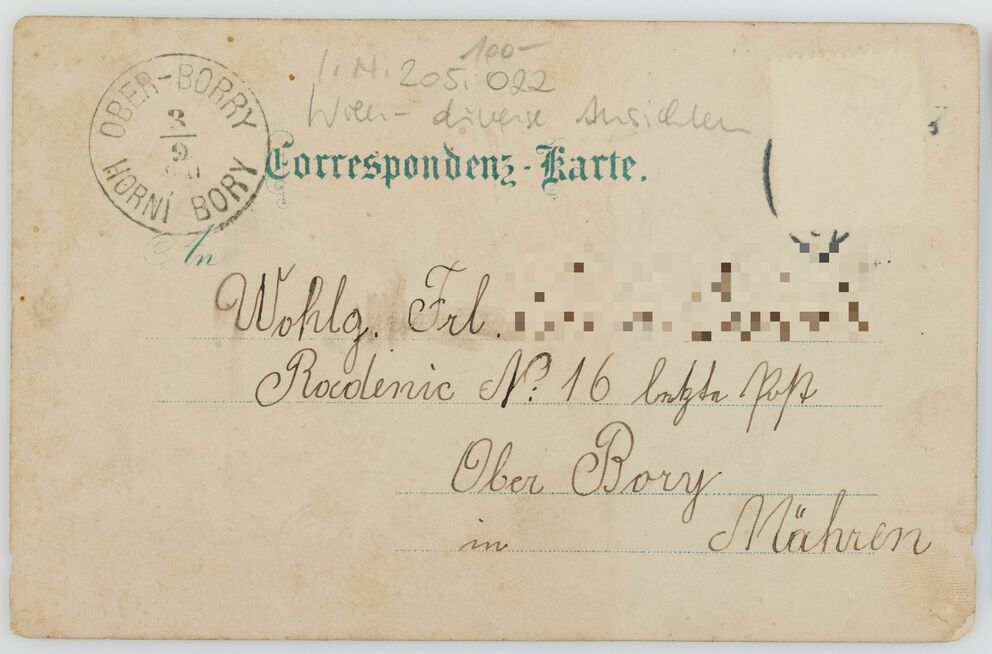 100-
I. N. 205.022
Wien - diverse Ansichten
OBER-BORRY
3
9
HORNÍ BORY
Correspondenz-Karte.
An
Wohlg. Frl.
Radenic Nº 16 letzte Post
Ober Bory
in Mähren